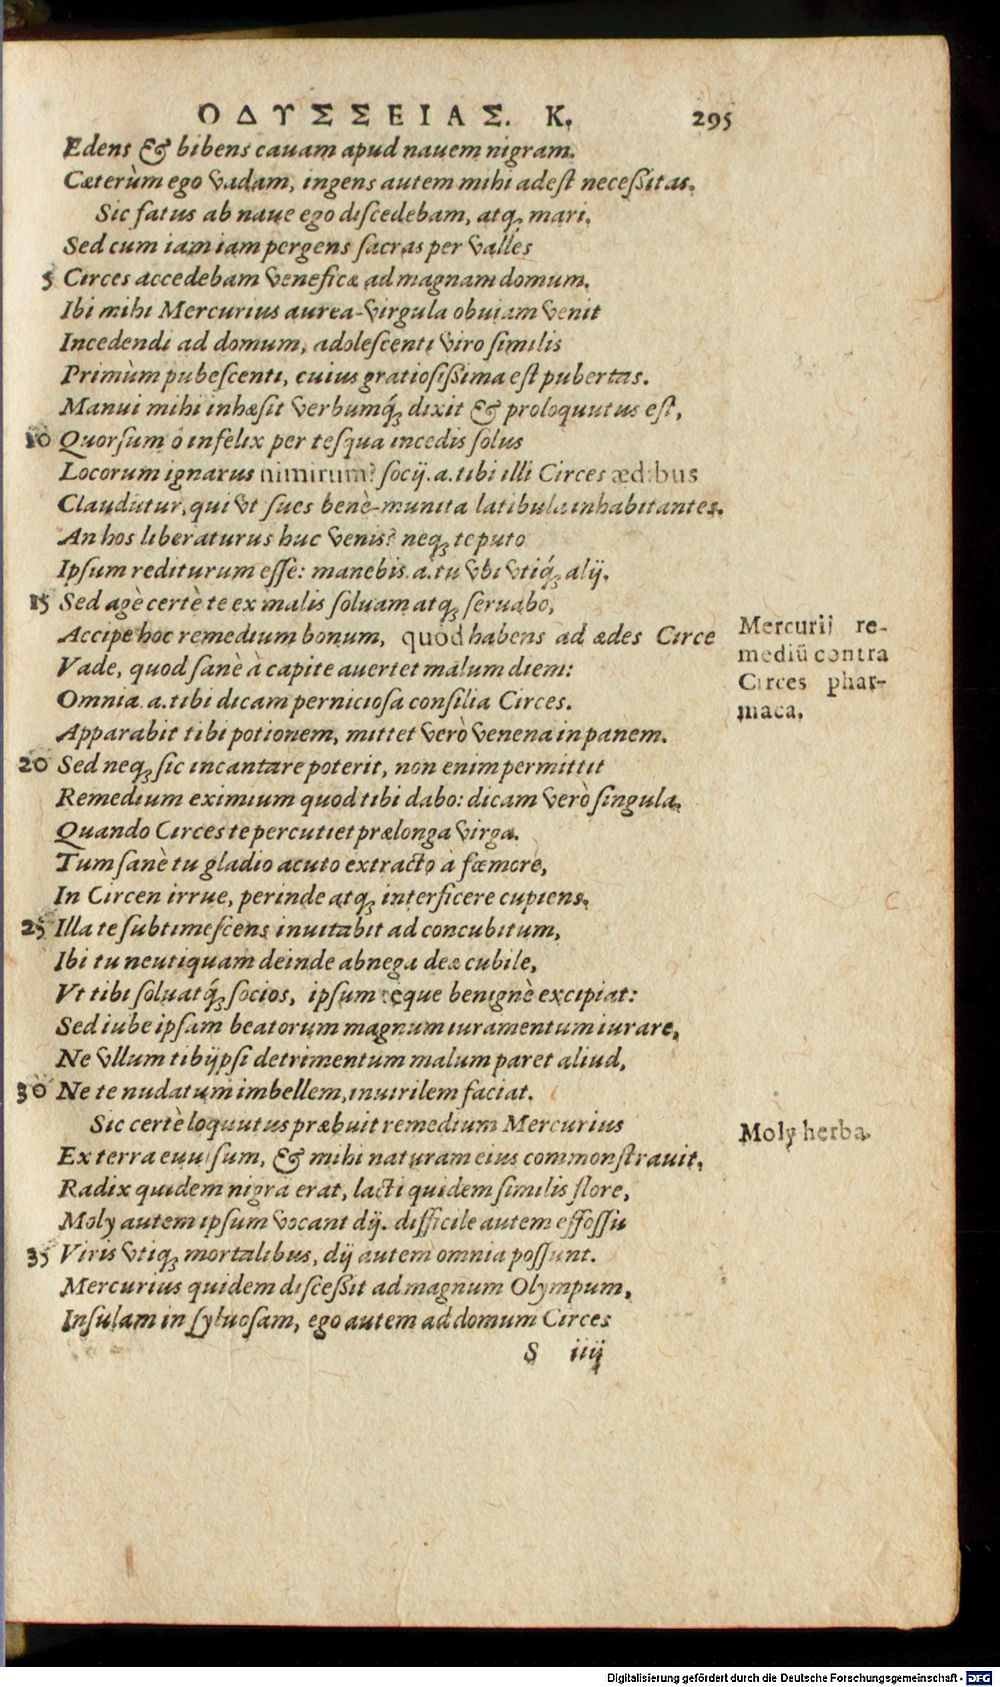 ΟΔΥΣΣΕΙΑΣ. Κ. 295
Edens & bibens cauam apud nauem nigram.
Cæterùm ego vadam, ingens autem mihi adest necessitas.
Sic fatus ab naue ego discedebam, atq; mari.
Sed cum iam iam pergens sacras per valles
5 Circes accedebam veneficæ ad magnam domum.
Ibi mihi Mercurius aurea-virgula obuiam venit
Incedendi ad domum, adolescenti viro similis
Primùm pubescenti, cuius gratiosissima est pubertas.
Manui mihi inhæsit verbumq́; dixit & proloquutus est,
10 Quorsum ô infelix per tesqua incedis solus
Locorum ignarus nimirum? socij .a. tibi illi Circes ædibus
Claudūtur, qui vt sues benè-munita latibula inhabitantes.
An hos liberaturus huc venis? neq; te puto
Ipsum rediturum esse: manebis .a. tu vbi vtiq́; alij.
15 Sed agè certè te ex malis soluam atq; seruabo,
Accipe hoc remedium bonum, quod habens ad ædes Circe
Vade, quod sanè à capite auertet malum diem:
Omnia .a. tibi dicam perniciosa consilia Circes.
Apparabit tibi potionem, mittet verò venena in panem.
20 Sed neq; sic incantare poterit, non enim permittit
Remedium eximium quod tibi dabo: dicam verò singula.
Quando Circes te percutiet prælonga virga.
Tum sanè tu gladio acuto extracto à fœmore,
In Circen irrue, perinde atq; interficere cupiens.
25 Illa te subtimescens inuitabit ad concubitum,
Ibi tu neutiquam deinde abnega deæ cubile,
Vt tibi soluatq́; socios, ipsum teque benignè excipiat:
Sed iube ipsam beatorum magnum iuramentum iurare,
Ne vllum tibi ipsi detrimentum malum paret aliud,
30 Ne te nudatum imbellem, inuirilem faciat.
Sic certè loquutus præbuit remedium Mercurius
Ex terra euulsum, & mihi naturam eius commonstrauit,
Radix quidem nigra erat, lacti quidem similis flore,
Moly autem ipsum vocant dij. difficile autem effossu
35 Viris vtiq; mortalibus, dij autem omnia possunt.
Mercurius quidem discessit ad magnum Olympum,
Insulam in syluosam, ego autem ad domum Circes
S iiij
Mercurij re-
mediū contra
Circes phar-
maca.
Moly herba.
Digitalisierung gefördert durch die Deutsche Forschungsgemeinschaft - DFG